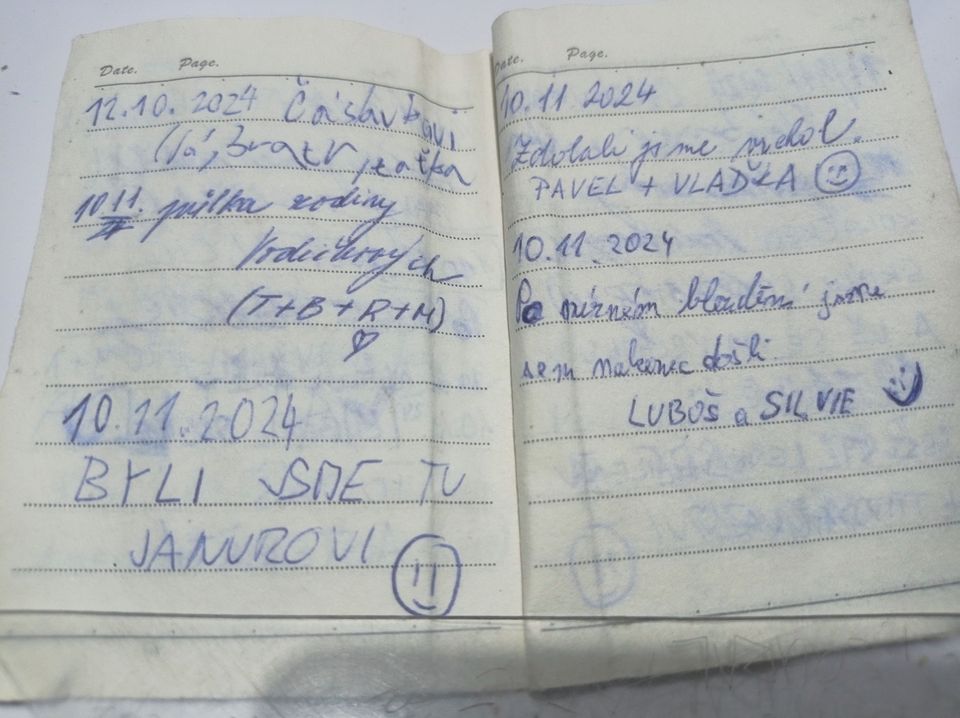 Date. Page.
12.10.2024 Čáslavkovi
(Já, Bratr, taťka
10.11. půlka rodiny
Vodičkových
(T+B+R+M)
10.11.2024
BYLI JSME TU
JANUROVI
Date. Page.
10.11 2024
Zdolali jsme vrchol.
PAVEL + VLAĎKA
10.11.2024
Po mírném bloudění jsme
sem nakonec došli.
LUBOŠ a SILVIE